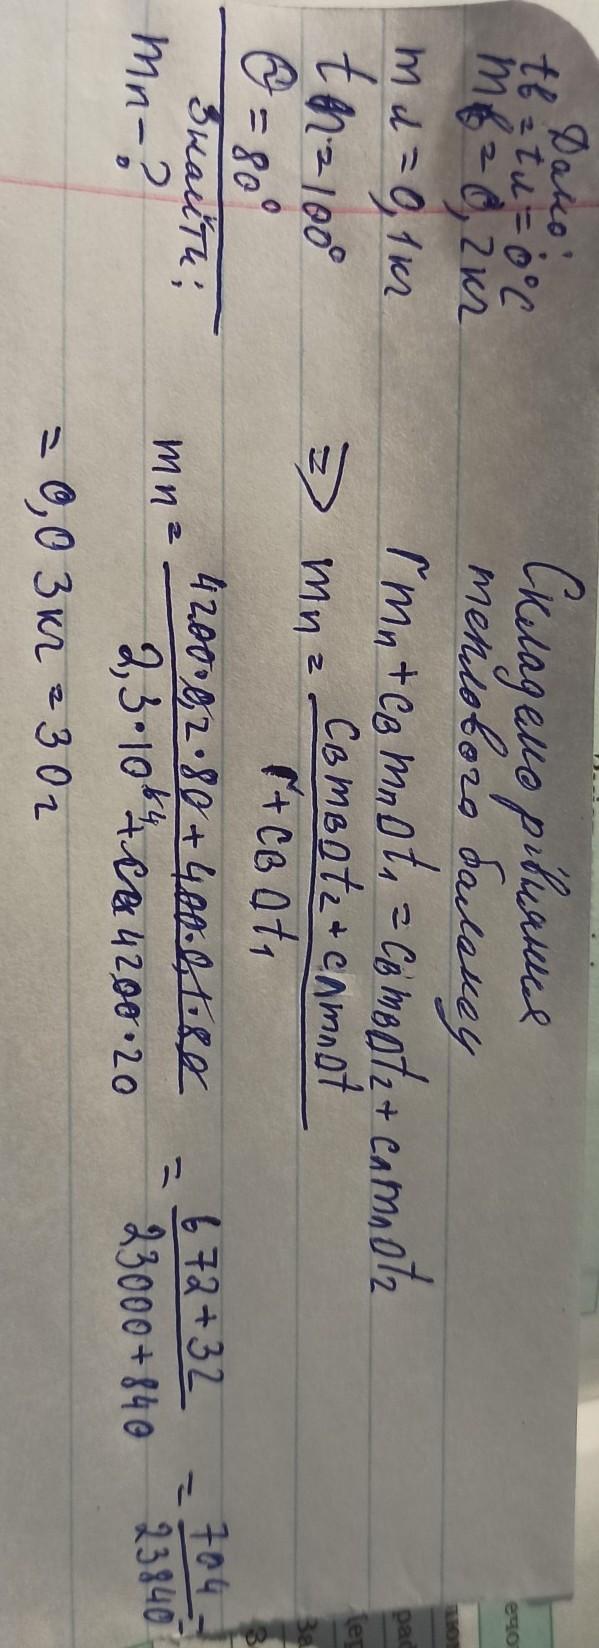 Дано:
tв = tл = 0°C
mв = 0,2кг
mл = 0,1кг
tп = 100°
Θ = 80°
Знайти:
mп - ?
Складемо рівняння
теплового балансу
rmп + cвmпΔt₁ = cвmвΔt₂ + cлmлΔt₂
⇒ mп = (cвmвΔt₂ + cлmлΔt) / (r + cвΔt₁)
mп = (4200·0,2·80 + 400·0,1·80) / (2,3·10⁶ ⁴ + 4200·20) = (672 + 32) / (23000 + 840) = 704 / 23840 =
= 0,03кг = 30г